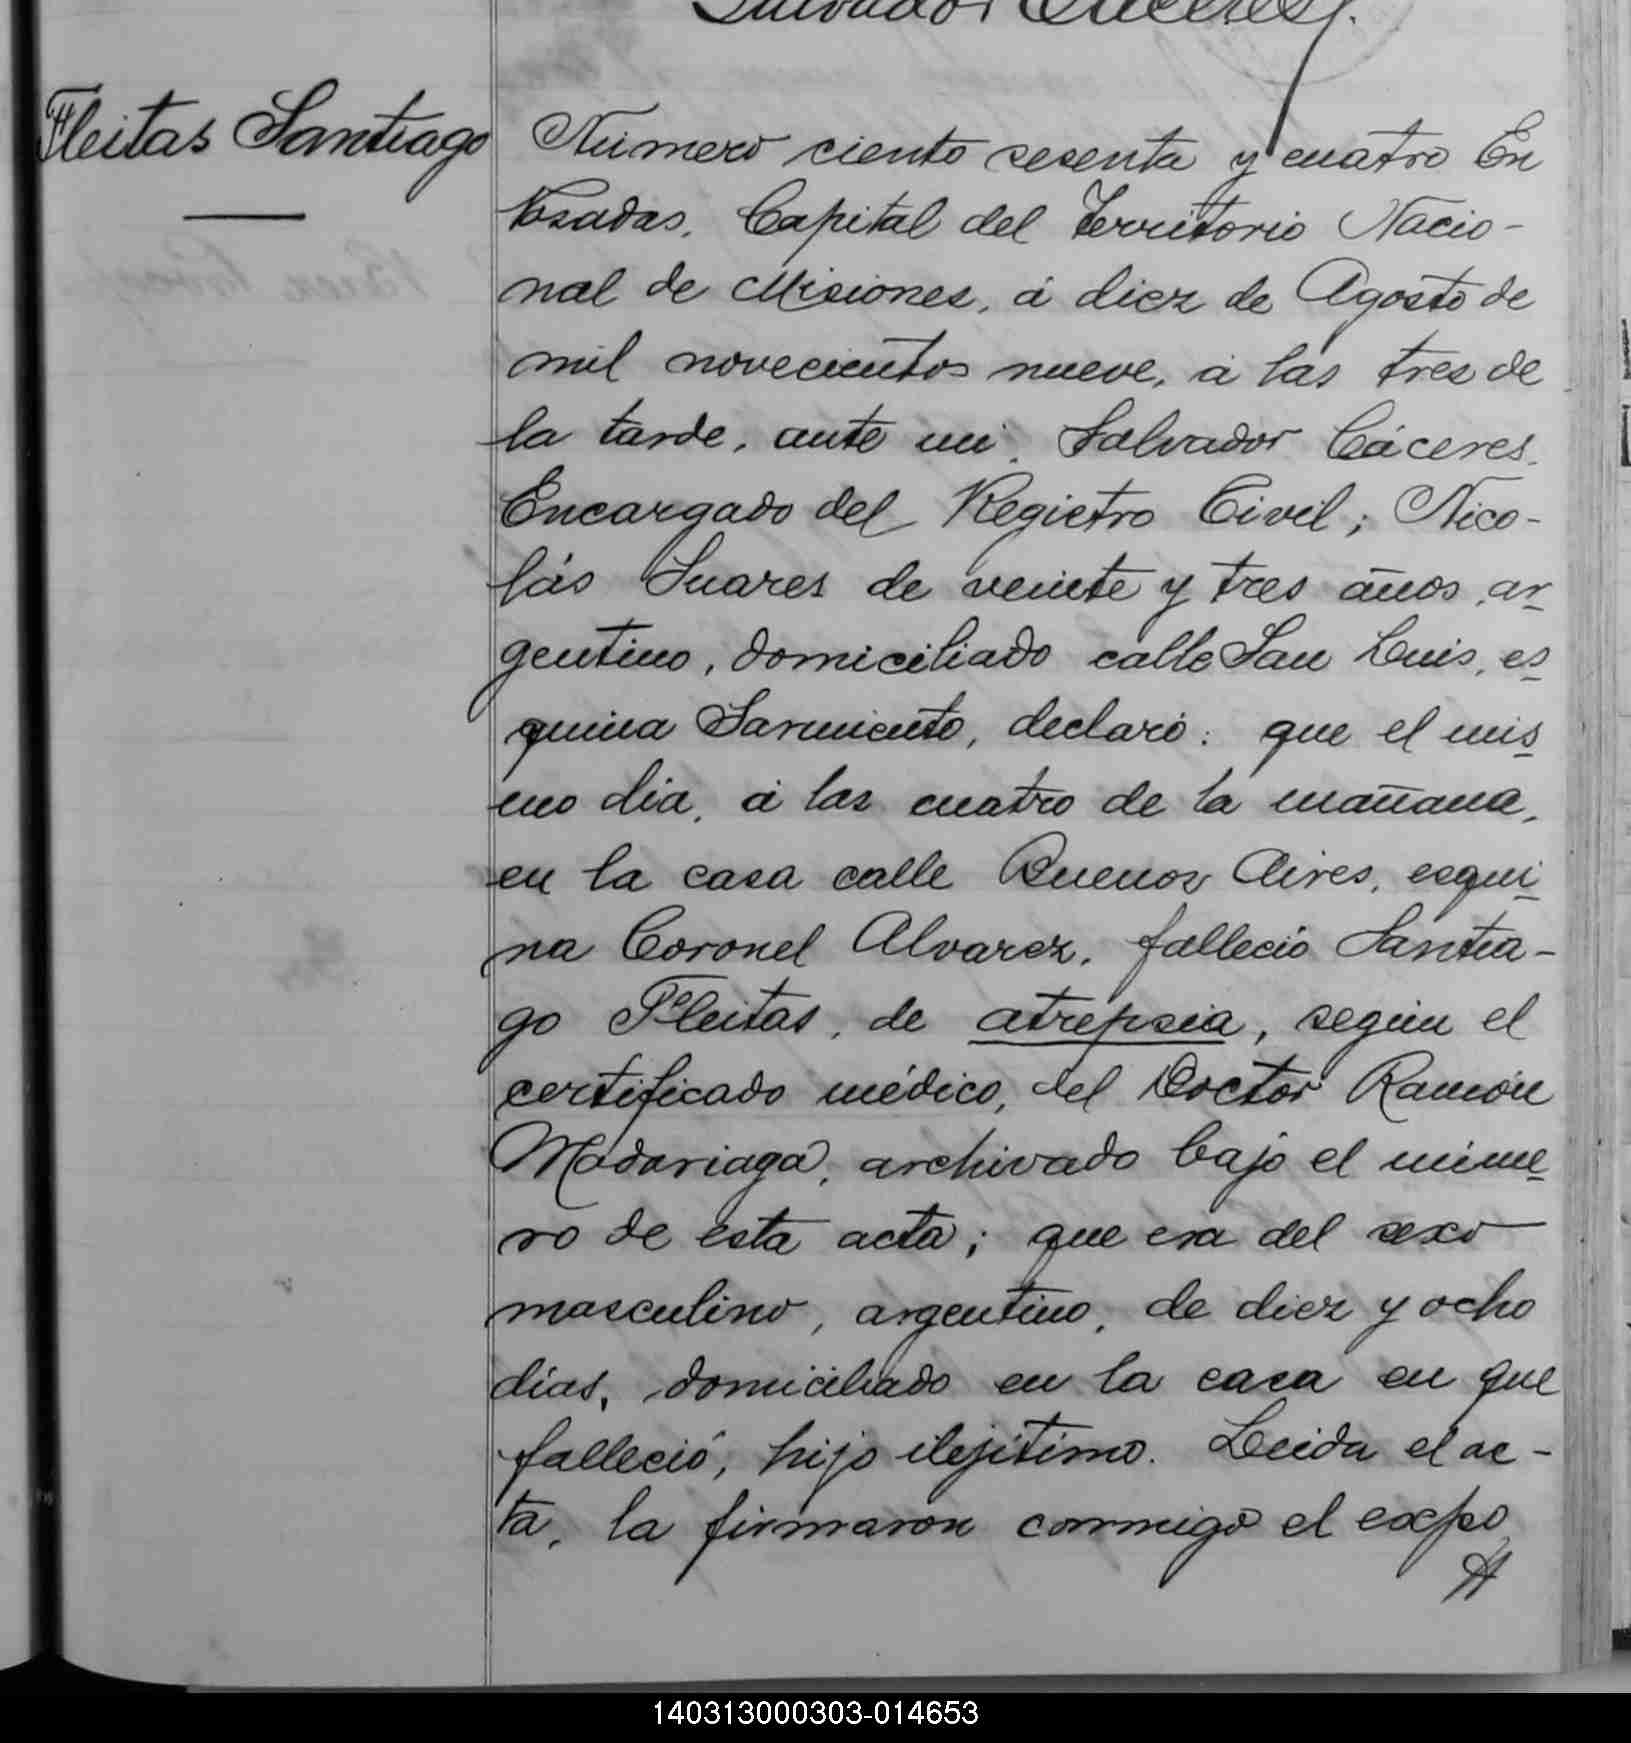 Salvador Cáceres.
Fleitas Santiago
Número ciento sesenta y cuatro En
Posadas, Capital del Territorio Nacio-
nal de Misiones, á diez de Agosto de
mil novecientos nueve, á las tres de
la tarde, ante mi Salvador Cáceres,
Encargado del Registro Civil; Nico-
lás Suares de veinte y tres años, ar-
gentino, domiciliado calle San Luis, es-
quina Sarmiento, declaró: que el mis-
mo dia, á las cuatro de la mañana,
en la casa calle Buenos Aires, esqui-
na Coronel Alvarez, falleció Santia-
go Fleitas, de atrepsia, según el
certificado médico, del Doctor Ramón
Madariaga, archivado bajo el núme-
ro de esta acta; que era del sexo
masculino, argentino, de diez y ocho
dias, domiciliado en la casa en que
falleció, hijo ilejítimo. Leida el ac-
ta, la firmaron conmigo el expo
140313000303-014653